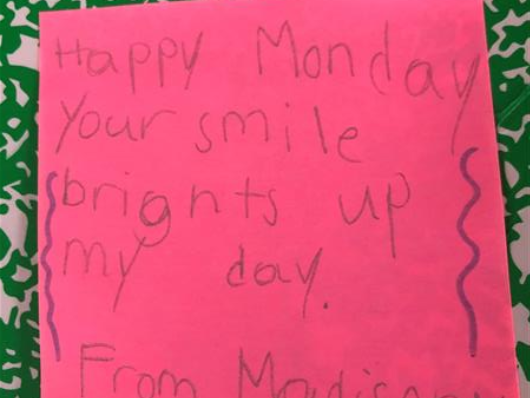 Happy Monday
Your smile
brights up
my day.
From